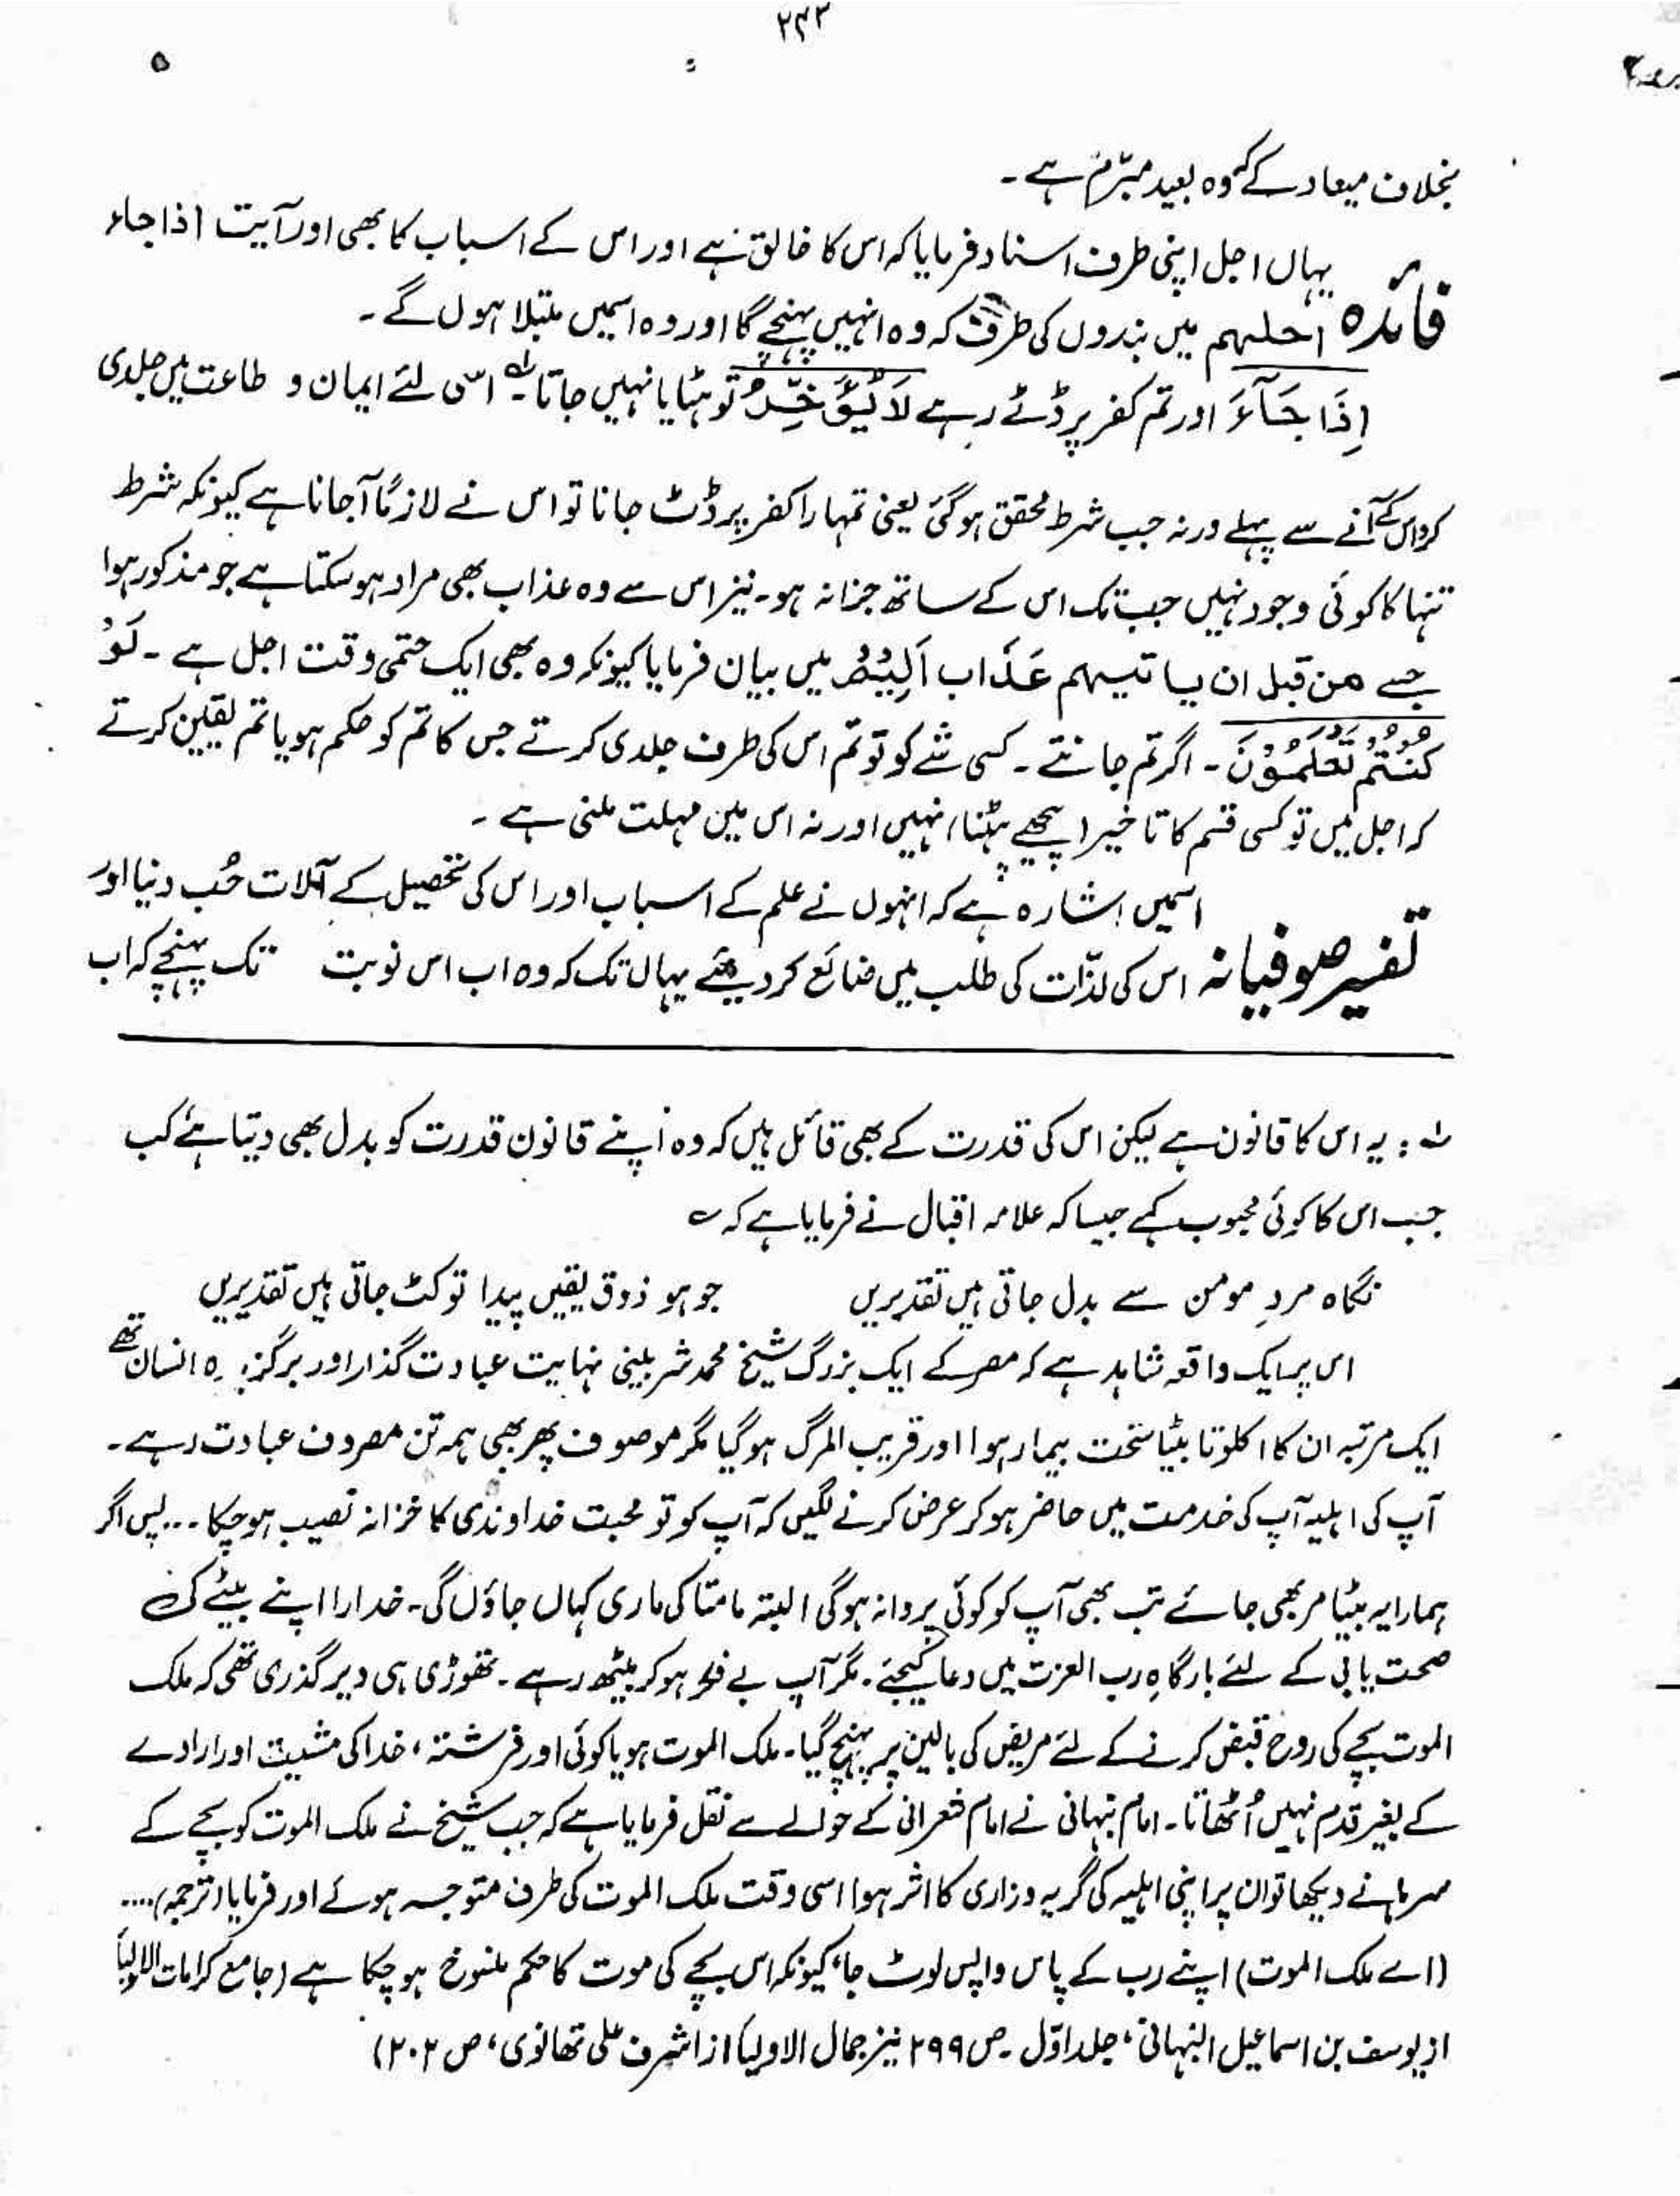 ۲۴۲
بخلاف میعاد کے کہ وہ بعید مبرّم ہے ۔
یہاں اجل اپنی طرف اسناد فرمایا کہ اس کا خالق ہے اور اس کے اسباب کا بھی اور آیت اذا جاء
فائدہ اجلہم میں بندوں کی طرف کہ وہ انہیں پہنچے گا اور وہ اسمیں مبتلا ہوں گے ۔
اِذَا جَآءَ اور تم کفر پر ڈٹے رہے لَا یُؤَخَّرُ تو ہٹایا نہیں جاتا ۔ لہ اسی لئے ایمان و طاعت میں جلدی
کرو اس کے آنے سے پہلے ورنہ جب شرط محقق ہو گئی یعنی تمہارا کفر پر ڈٹ جانا تو اس نے لازماً آجانا ہے کیونکہ شرط
تنہا کا کوئی وجود نہیں جب تک اس کے ساتھ جزا نہ ہو ۔ نیز اس سے وہ عذاب بھی مراد ہو سکتا ہے جو مذکور ہوا
جسے من قبل ان یاتیہم عَذَاب اَلِیْمٌ میں بیان فرمایا کیونکہ وہ بھی ایک حتمی وقت اجل ہے ۔ لَوْ
کُنْتُمْ تَعْلَمُوْنَ ۔ اگر تم جانتے ۔ کسی شے کو تو تم اس کی طرف جلدی کرتے جس کا تم کو حکم ہو یا تم یقین کرتے
کہ اجل میں تو کسی قسم کا تاخیر (پیچھے ہٹنا) نہیں اور نہ اس میں مہلت ملنی ہے ۔
اسمیں اشارہ ہے کہ انہوں نے علم کے اسباب اور اس کی تحصیل کے آلات حُب دنیا اور
تفسیر صوفیانہ اس کی لذّات کی طلب میں ضائع کر دیئے یہاں تک کہ وہ اب اس نوبت تک پہنچے کہ اب
لہ : یہ اس کا قانون ہے لیکن اس کی قدرت کے بھی قائل ہیں کہ وہ اپنے قانون قدرت کو بدل بھی دیتا ہے کب
جب اس کا کوئی محبوب کہے جیسا کہ علامہ اقبال نے فرمایا ہے کہ ؎
نگاہ مردِ مومن سے بدل جاتی ہیں تقدیریں جو ہو ذوق یقیں پیدا تو کٹ جاتی ہیں تقدیریں
اس پر ایک واقعہ شاہد ہے کہ مصر کے ایک بزرگ شیخ محمد شربینی نہایت عبادت گذار اور برگزیدہ انسان تھے
ایک مرتبہ ان کا اکلوتا بیٹا سخت بیمار ہوا اور قریب المرگ ہو گیا مگر موصوف پھر بھی ہمہ تن مصروف عبادت رہے ۔
آپ کی اہلیہ آپ کی خدمت میں حاضر ہو کر عرض کرنے لگیں کہ آپ کو تو محبت خداوندی کا خزانہ نصیب ہو چکا ... پس اگر
ہمارا یہ بیٹا مر بھی جائے تب بھی آپ کو کوئی پروا نہ ہو گی البتہ مامتا کی ماری کہاں جاؤں گی ۔ خدارا اپنے بیٹے کی
صحت یابی کے لئے بارگاہِ رب العزت میں دعا کیجئے ۔ مگر آپ بے فکر ہو کر بیٹھ رہے ۔ تھوڑی ہی دیر گذری تھی کہ ملک
الموت بچے کی روح قبض کرنے کے لئے مریض کی بالین پر پہنچ گیا ۔ ملک الموت ہو یا کوئی اور فرشتہ ، خدا کی مشیت اور ارادے
کے بغیر قدم نہیں اُٹھاتا ۔ امام نبہانی نے امام شعرانی کے حوالے سے نقل فرمایا ہے کہ جب شیخ نے ملک الموت کو بچے کے
سرہانے دیکھا تو ان پر اپنی اہلیہ کی گریہ وزاری کا اثر ہوا اسی وقت ملک الموت کی طرف متوجہ ہوئے اور فرمایا (ترجمہ) ....
(اے ملک الموت) اپنے رب کے پاس واپس لوٹ جا ، کیونکہ اس بچے کی موت کا حکم منسوخ ہو چکا ہے (جامع کرامات الاولیأ
از یوسف بن اسماعیل النبہانی ، جلد اوّل ۔ ص ۲۹۹ نیز جمال الاولیأ از اشرف علی تھانوی ، ص ۲۰۲)